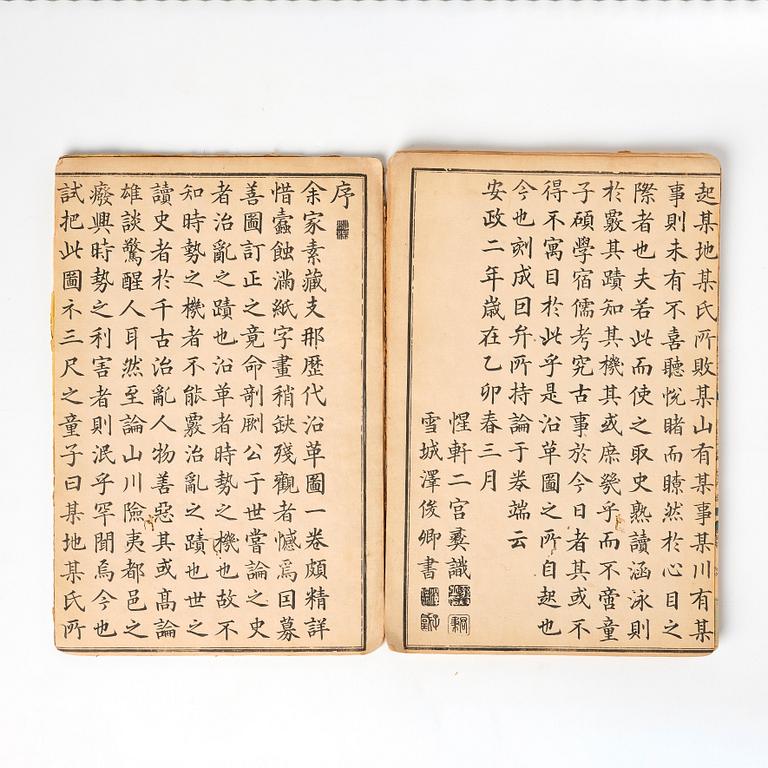 序
余家素藏支那歷代沿革圖一卷頗精詳
惜蠹蝕滿紙字畫稍缺殘觀者憾焉囙募
善圖訂正之竟命剞劂公于世嘗論之史
者治亂之蹟也沿革者時勢之機也故不
知時勢之機者不能覈治亂之蹟也世之
讀史者於千古治亂人物善惡其或髙論
雄談驚醒人耳然至論山川險夷都邑之
癈興時勢之利害者則泯乎罕聞焉今也
試把此圖示三尺之童子曰某地某氏所
起某地某氏所敗某山有某事某川有某
事則未有不喜聽悅睹而瞭然於心目之
際者也夫若此而使之取史熟讀涵泳則
於覈其蹟知其機其或庶幾乎而不啻童
子碩學宿儒考究古事於今日者其或不
得不寓目於此乎是沿革圖之所自起也
今也刻成囙弁所持論于卷端云
安政二年歲在乙卯春三月
惺軒二宮彜識
雪城澤俊卿書